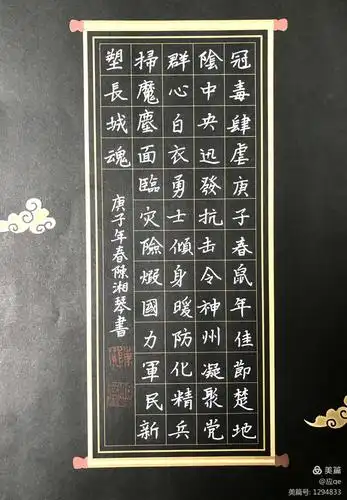 冠毒肆虐庚子春鼠年佳節楚地
陰中央迅發抗击令神州凝聚党
群心白衣勇士傾身暖防化精兵
掃魔塵面臨灾險煅國力軍民新
塑長城魂
庚子年春陳湘琴書
美篇
@应qe
美篇号: 1294833